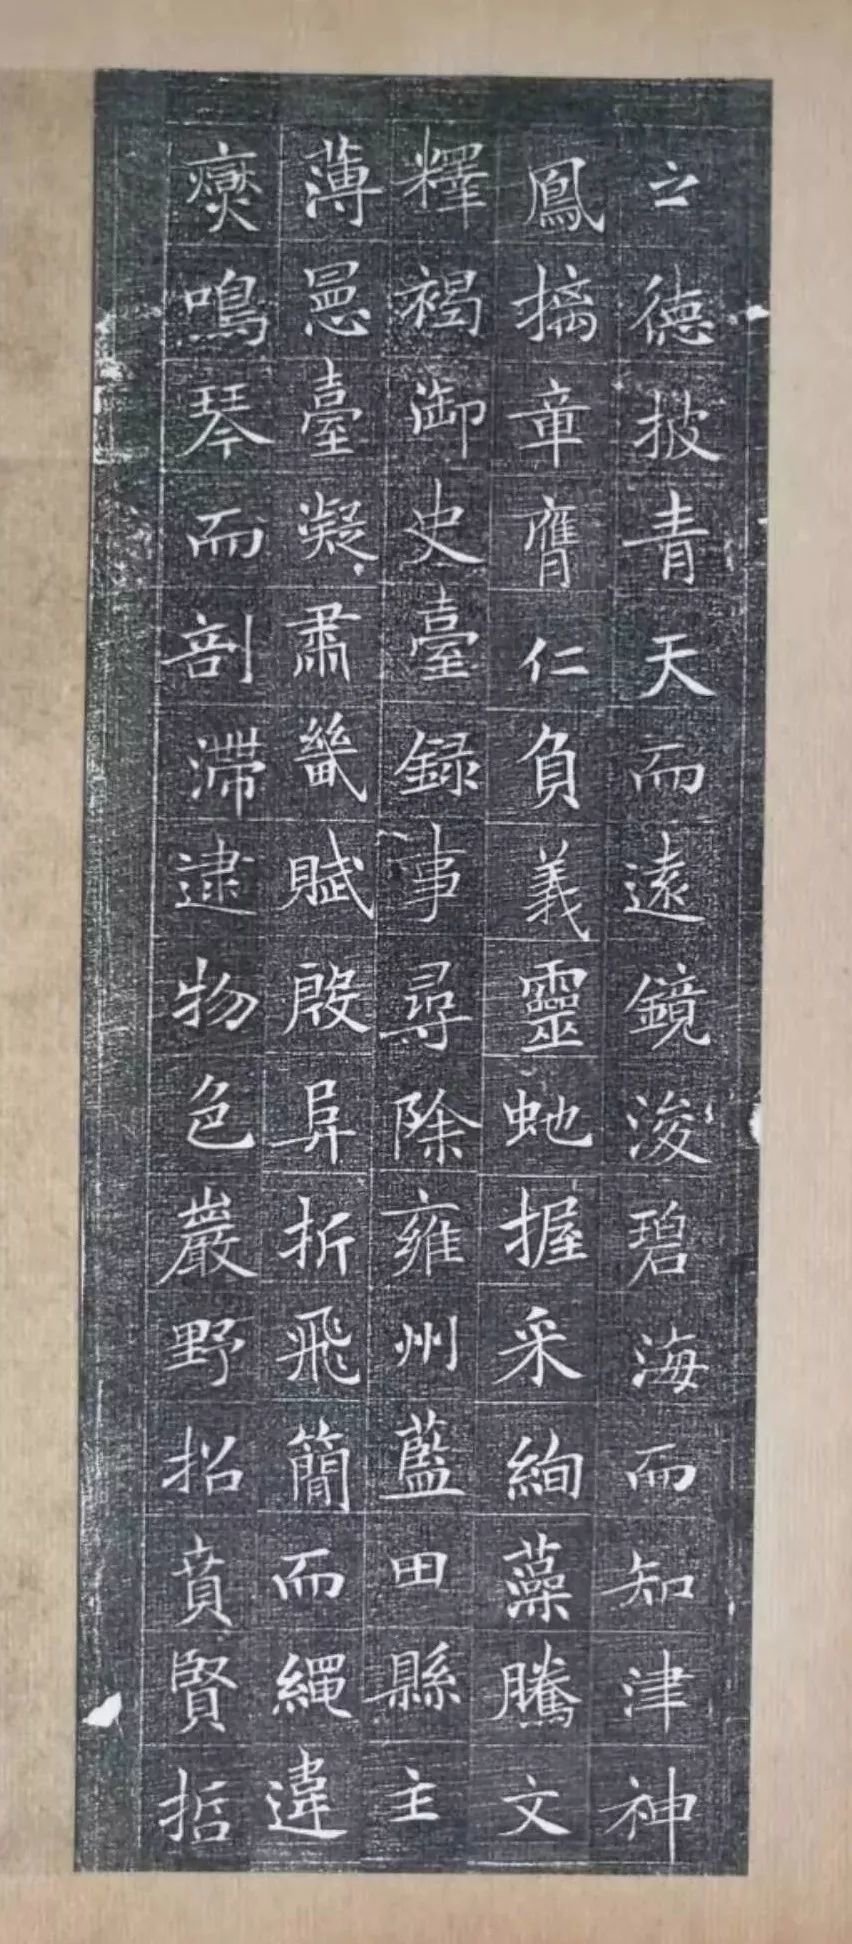 之德披青天而遠鏡浚碧海而知津神
鳳摛章膺仁負義靈虵握采絢藻騰文
釋褐御史臺録事尋除雍州藍田縣主
薄曑臺凝肅畿賦殷阜折飛簡而繩違
爕鳴琴而剖滯逮物色巖野招賁賢哲